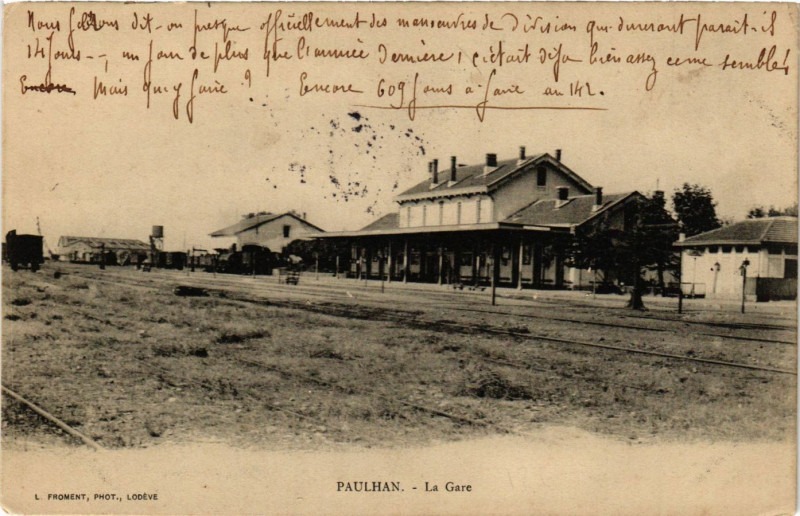 Nous faisons dit-on presque officiellement des manœuvres de Division qui dureront parait-il
14 jours --, un jour de plus que l'année Dernière, c'était déja bien assez ce me semble
Encore, Mais qu'y faire ? Encore 609 jours à faire au 142.
PAULHAN. - La Gare
L. FROMENT, PHOT., LODÈVE